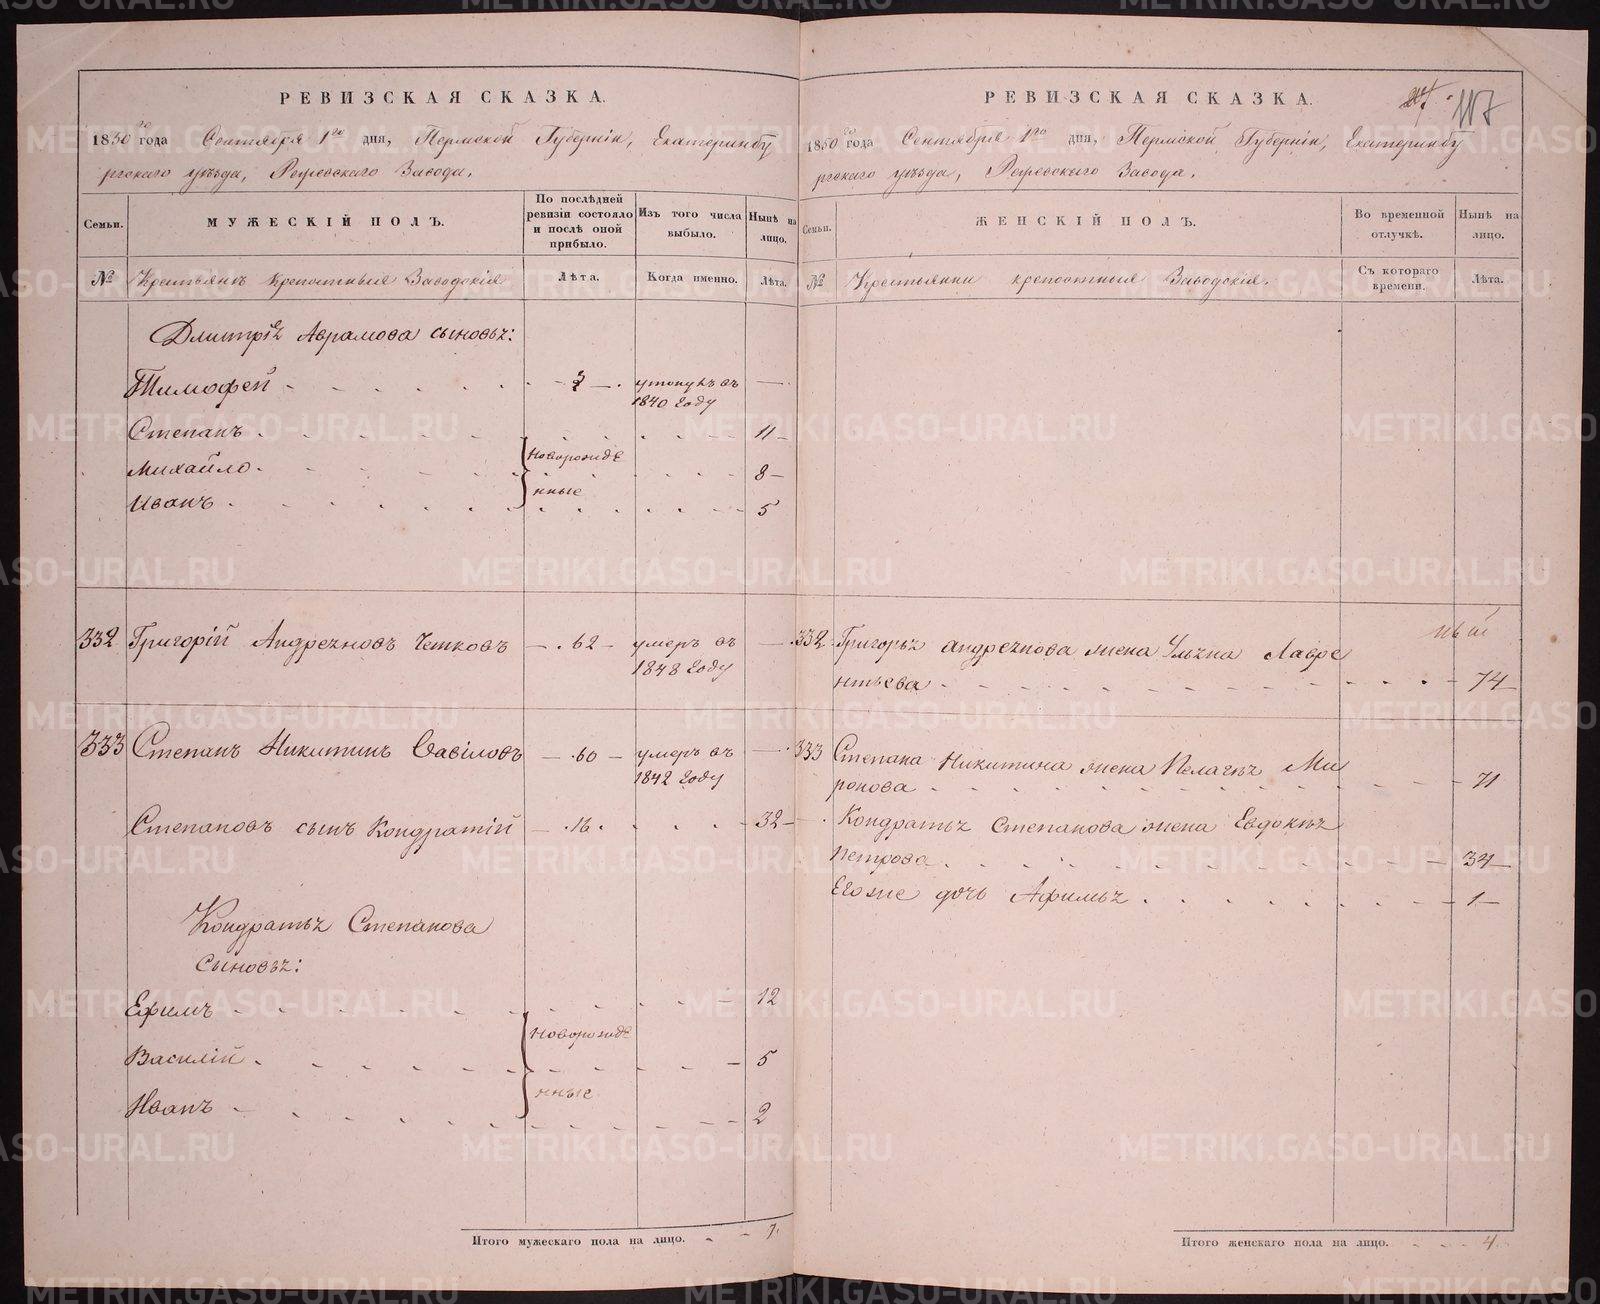 РЕВИЗСКАЯ СКАЗКА.
1850го года Сентября 1го дня, Пермской Губернiи, Екатеринбу
ргскаго уѣзда, Режевскаго Завода.
Семьи.
МУЖЕСКIЙ ПОЛЪ.
По послѣдней ревизiи состояло и послѣ оной прибыло.
Изъ того числа выбыло.
Нынѣ на лицо.
№
Крестьянъ Крепостныя Заводскiя
Лѣта.
Когда именно.
Лѣта.
Дмитрiя Аврамова сыновья:
Тимофей 3 утонулъ въ
1840 Году
Степанъ 11
Новорожде
Михайло 8
нные
Иванъ 5
332 Григорiй Андреяновъ 62 умеръ въ
1848 Году
333 Степанъ Никитинъ Савiловъ 60 умеръ въ
1842 Году
Степановъ сынъ Кондратiй 16 32
Кондратья Степанова
Сыновья:
Ефимъ 12
Новорожде
Василiй 5
нные
Иванъ 2
Итого мужескаго пола на лицо. 7.
РЕВИЗСКАЯ СКАЗКА.
117
1850го года Сентября 1го дня, Пермской Губернiи, Екатеринбу
ргскаго уѣзда, Режевскаго Завода.
Семьи.
ЖЕНСКIЙ ПОЛЪ.
Во временной отлучкѣ.
Нынѣ на лицо.
№
Крестьянки крепостныя Заводскiя.
Съ котораго времени.
Лѣта.
332 Григорья Андреянова жена Ульяна Лавре
нтьева 74
333 Степана Никитина жена Пелагея Ми
ронова 71
Кондратья Степанова жена Евдокея
Петрова 34
Егоже дочь Афимья 1
Итого женскаго пола на лицо. 4.
METRIKI.GASO-URAL.RU